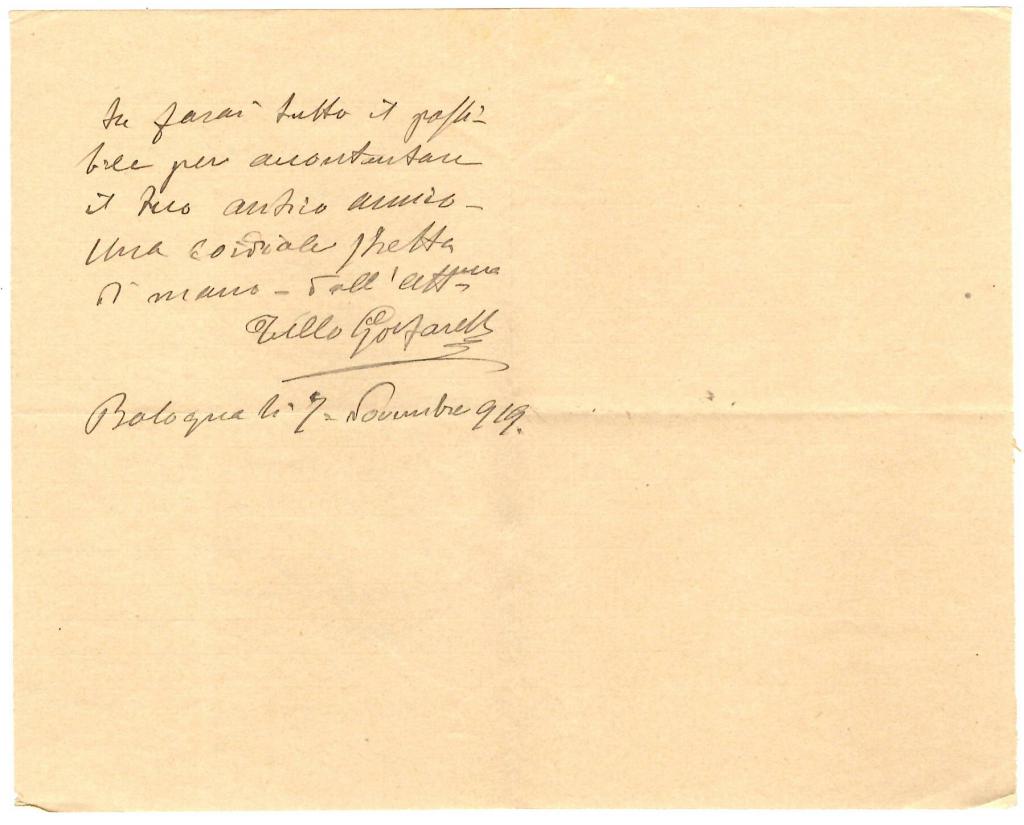 tu farai tutto il possi-
bile per accontentare
il tuo antico amico -
Una cordiale stretta
di mano - dall'
Tullo Golfarelli
Bologna li 7= Novembre 919.